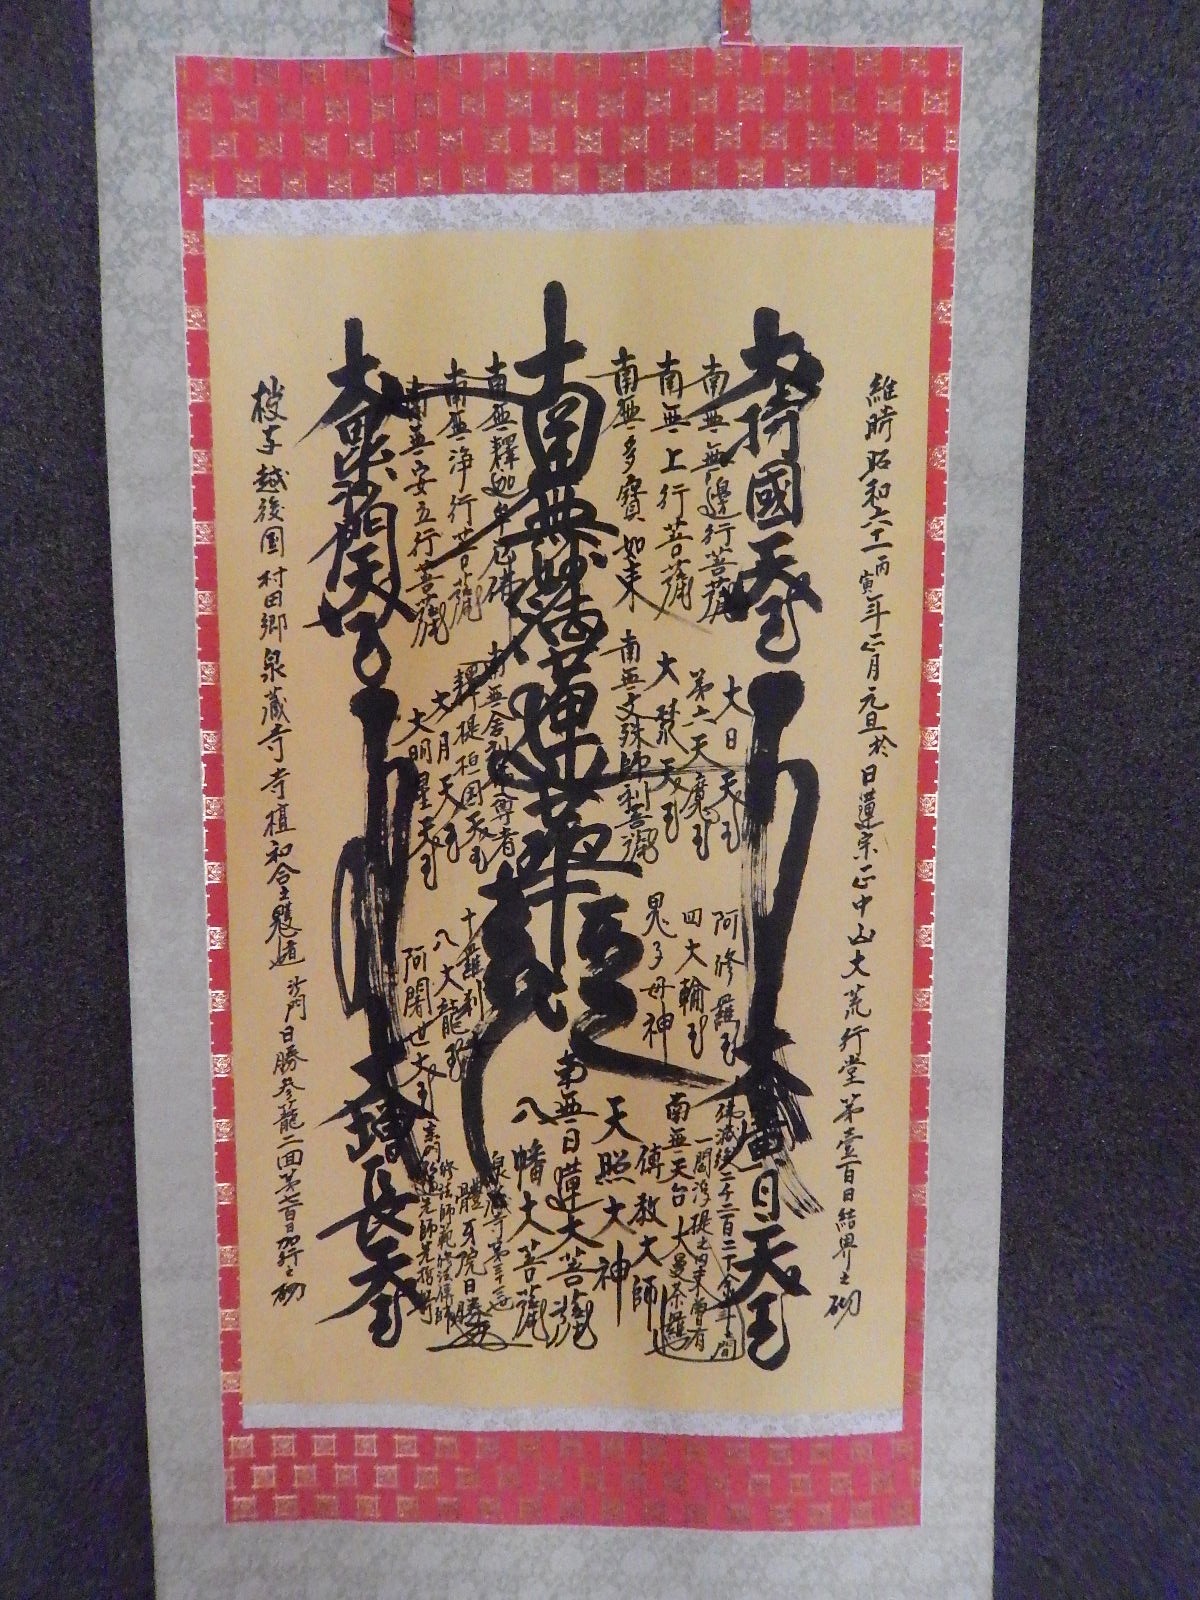 維時昭和六十一丙寅年正月元旦於日蓮宗正中山大荒行堂第壹百日結界之砌
大持國天王
大廣目天王
南無無邊行菩薩
南無上行菩薩
南無多寶如来
大日天王
第六天魔王
大梵天王
南無文殊師利菩薩
阿修羅王
四大輪王
鬼子母神
佛滅後二千二百二十余年之間
一閻浮提之内未曾有
大曼荼羅也
南無天台
傳教大師
天照大神
南無妙法蓮華經
南無日蓮大菩薩
八幡大菩薩
南無釋迦牟尼佛
南無浄行菩薩
南無安立行菩薩
南無舎利弗尊者
釋提桓因天王
大月天王
大明星天王
十羅刹女
八大龍王
阿闍世大王
泉蔵寺第三十三世
體玄院日勝
修法師範修法傳師
大毘沙門天王
大増長天王
越後国村田郷泉蔵寺寺檀和合之
沙門日勝参籠二回第七百日加行之砌